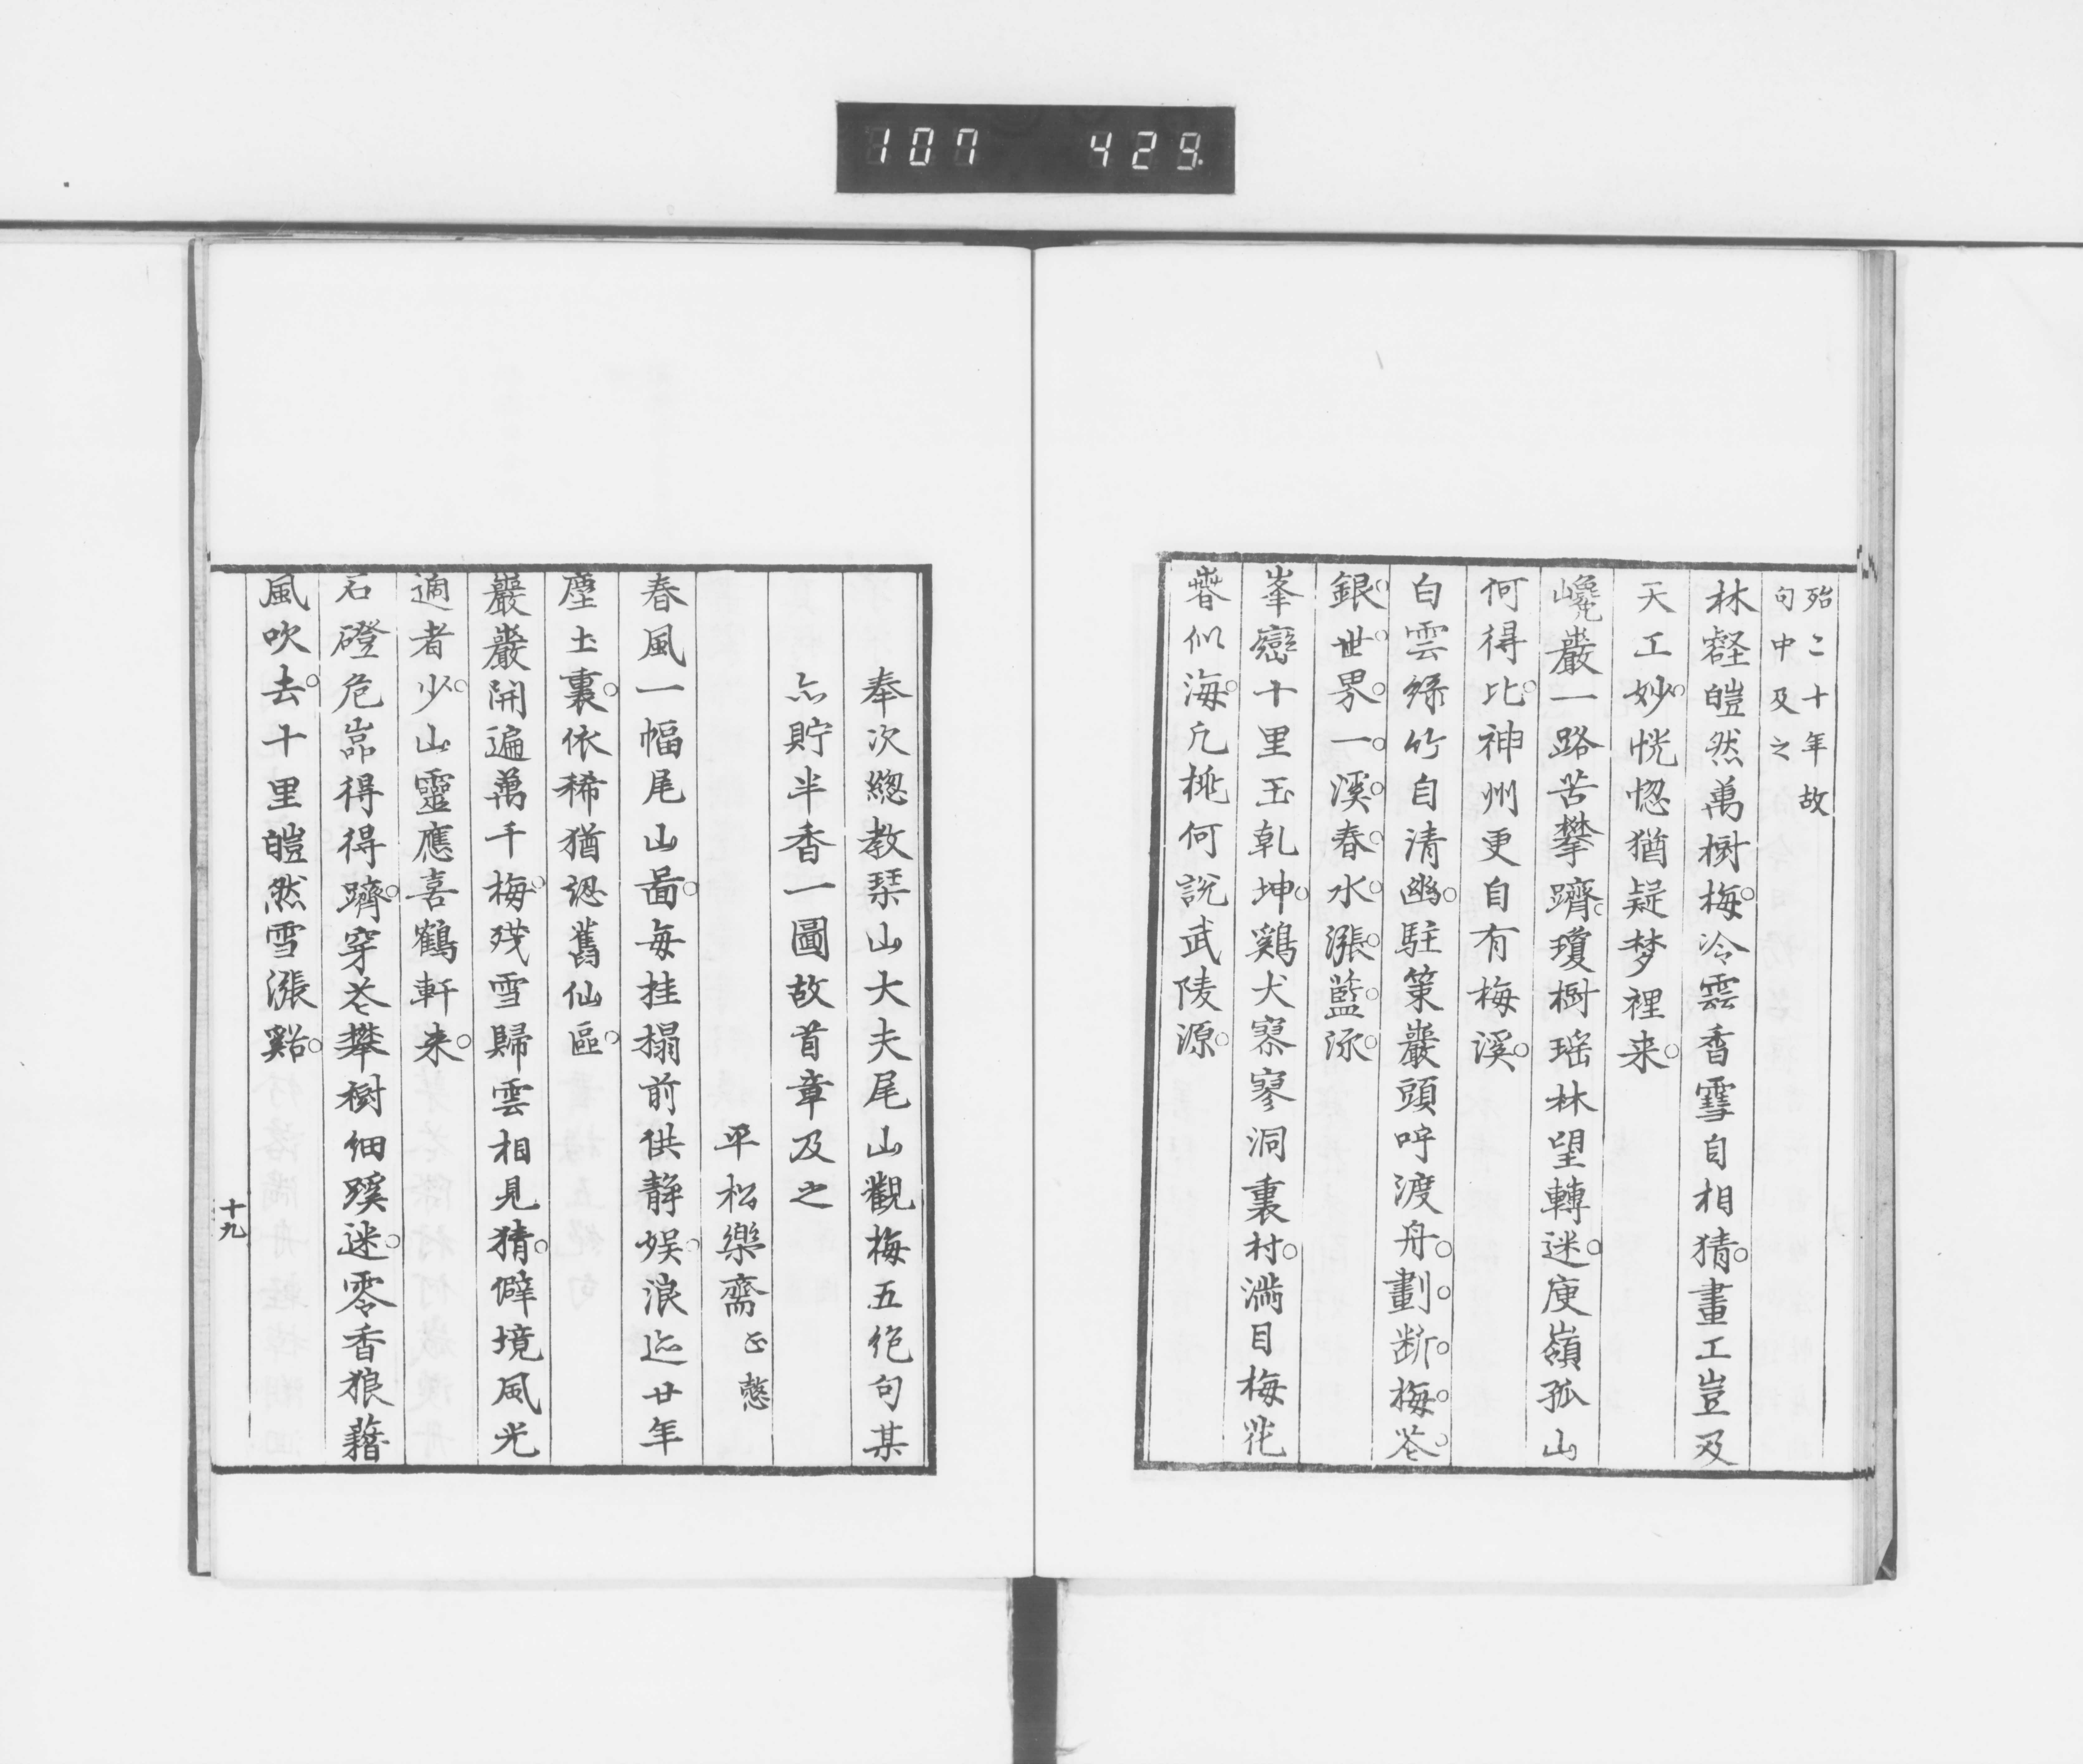 107 429
殆二十年故
句中及之
林壑皚然萬樹梅冷雲香雪自相猜畫工豈及
天工妙恍惚猶疑梦裡来
巉巖一路苦攀躋瓊樹瑶林望轉迷庾嶺孤山
何得比神州更自有梅溪
白雲綠竹自清幽駐策巖頭呼渡舟劃断梅花
銀世界一溪春水漲藍流
峯巒十里玉乾坤鷄犬寥寥洞裏村満目梅花
春似海凢桃何説武陵源
奉次總教琹山大夫尾山觀梅五絶句某
亦貯半香一圖故首章及之
平松樂齋 正愨
春風一幅尾山啚毎挂搨前供靜娯浪迹廿年
塵土裏依稀猶認舊仙區
巖巖開遍萬千梅残雪歸雲相見猜僻境風光
適者少山靈應喜鶴軒来
石磴危岿得得躋穿花攀樹細蹊迷零香狼藉
風吹去十里皚然雪漲谿
十九